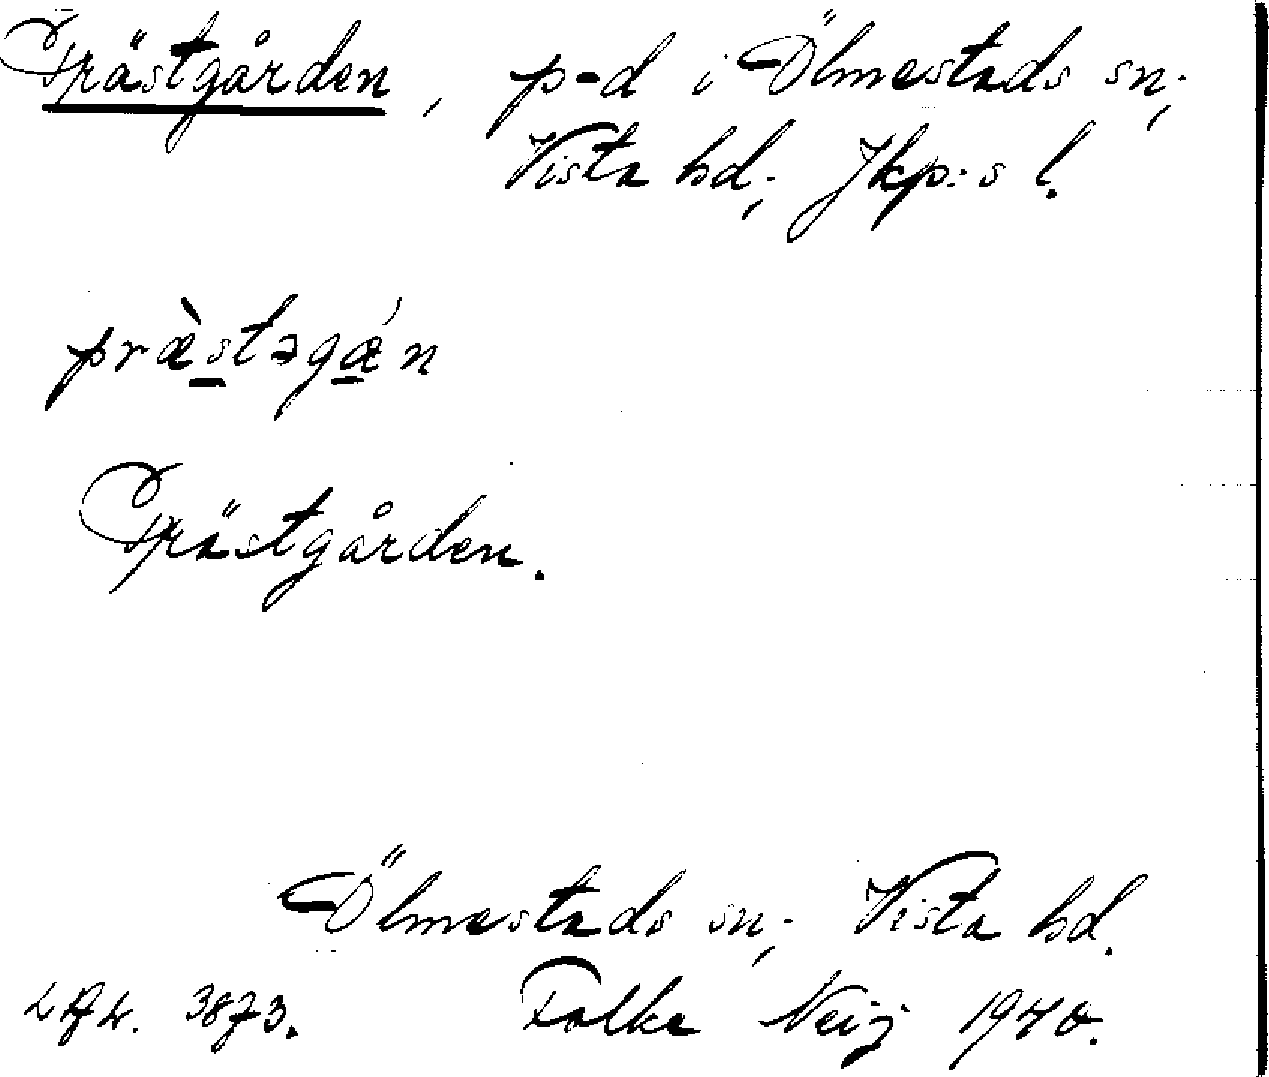 Prästgården, p-d i Ölmestads sn.,
Vista hd., Jkp:s l.
præ̀stəgǽn
Prästgården.
Ölmestads sn., Vista hd.
3873. Folke Neij 1940.